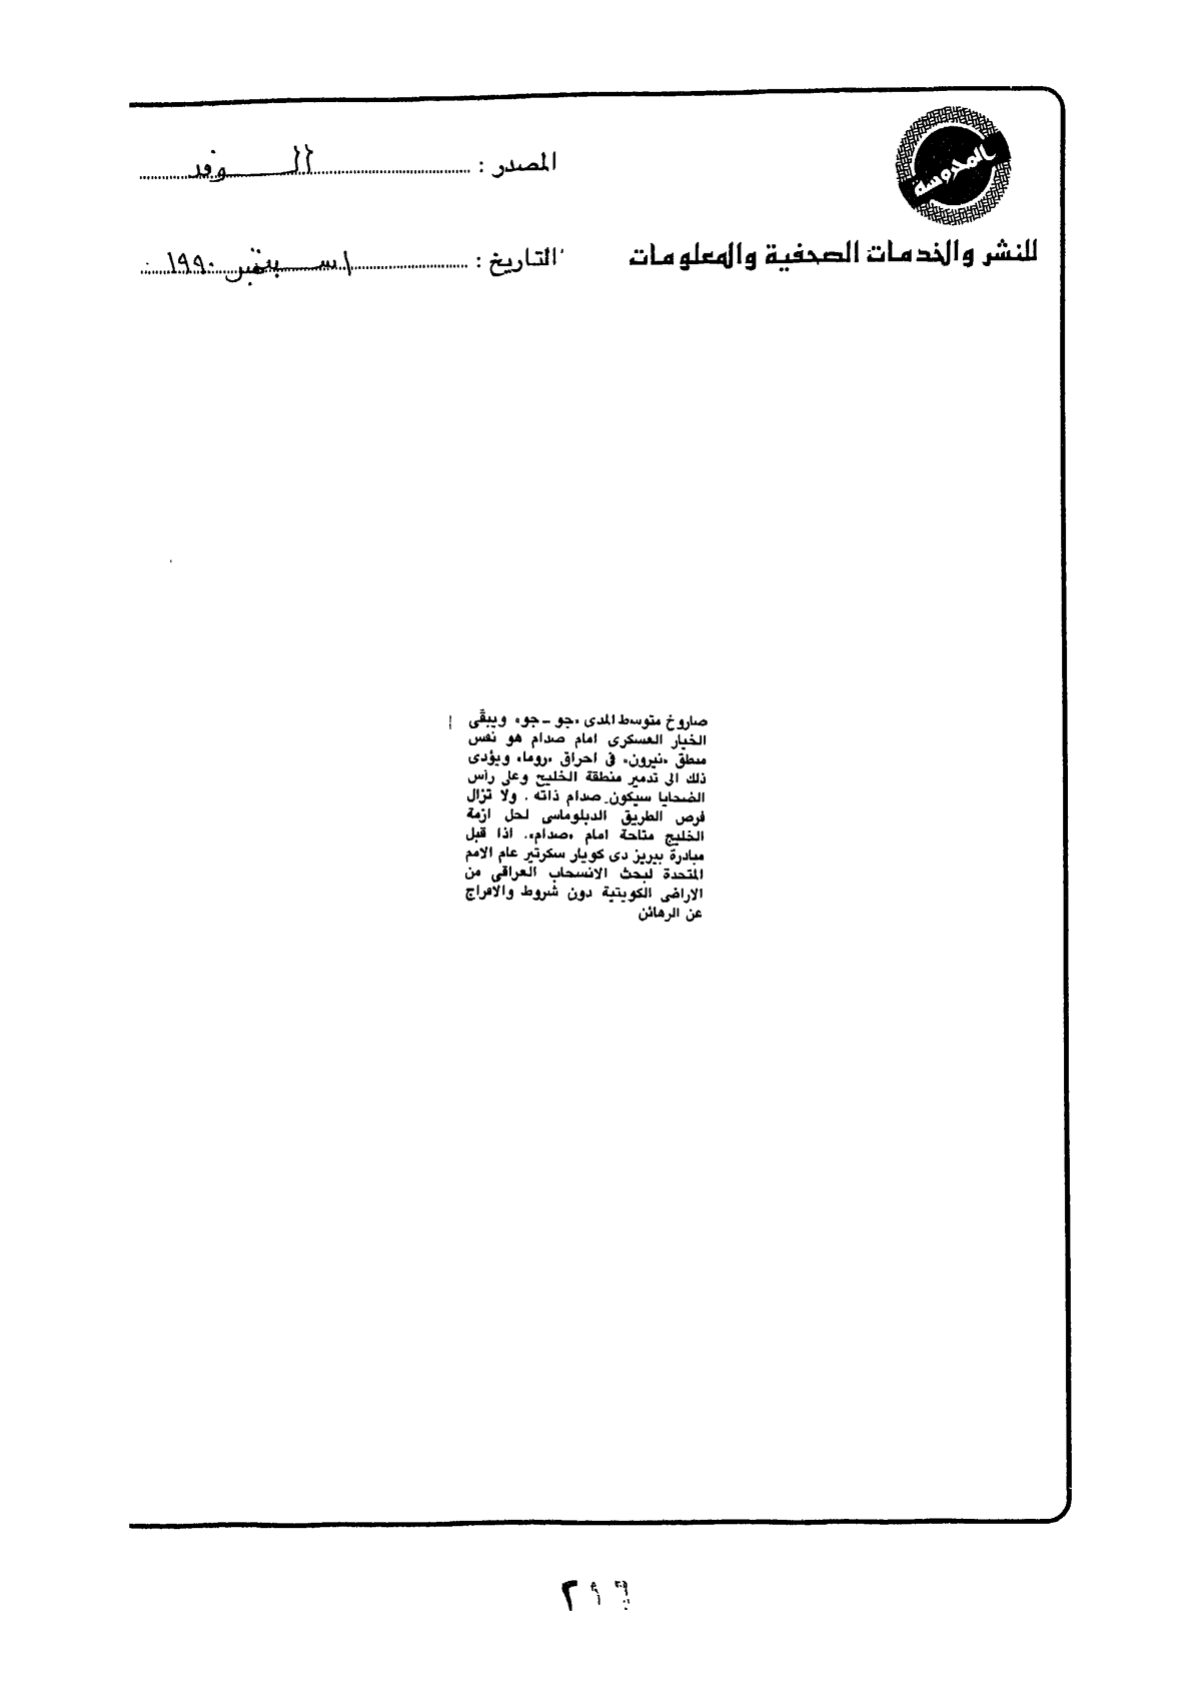 المحروسة
للنشر والخدمات الصحفية والمعلومات
المصدر : الوفد
التاريخ : ١ سبتمبر ١٩٩٠
صاروخ متوسط المدى «جو ـ جو» ويبقى
الخيار العسكرى امام صدام هو نفس
منطق «نيرون» فى احراق «روما» ويؤدى
ذلك الى تدمير منطقة الخليج وعلى رأس
الضحايا سيكون صدام ذاته . ولا تزال
فرص الطريق الدبلوماسى لحل ازمة
الخليج متاحة امام «صدام». اذا قبل
مبادرة بيريز دى كويار سكرتير عام الامم
المتحدة لبحث الانسحاب العراقى من
الاراضى الكويتية دون شروط والافراج
عن الرهائن